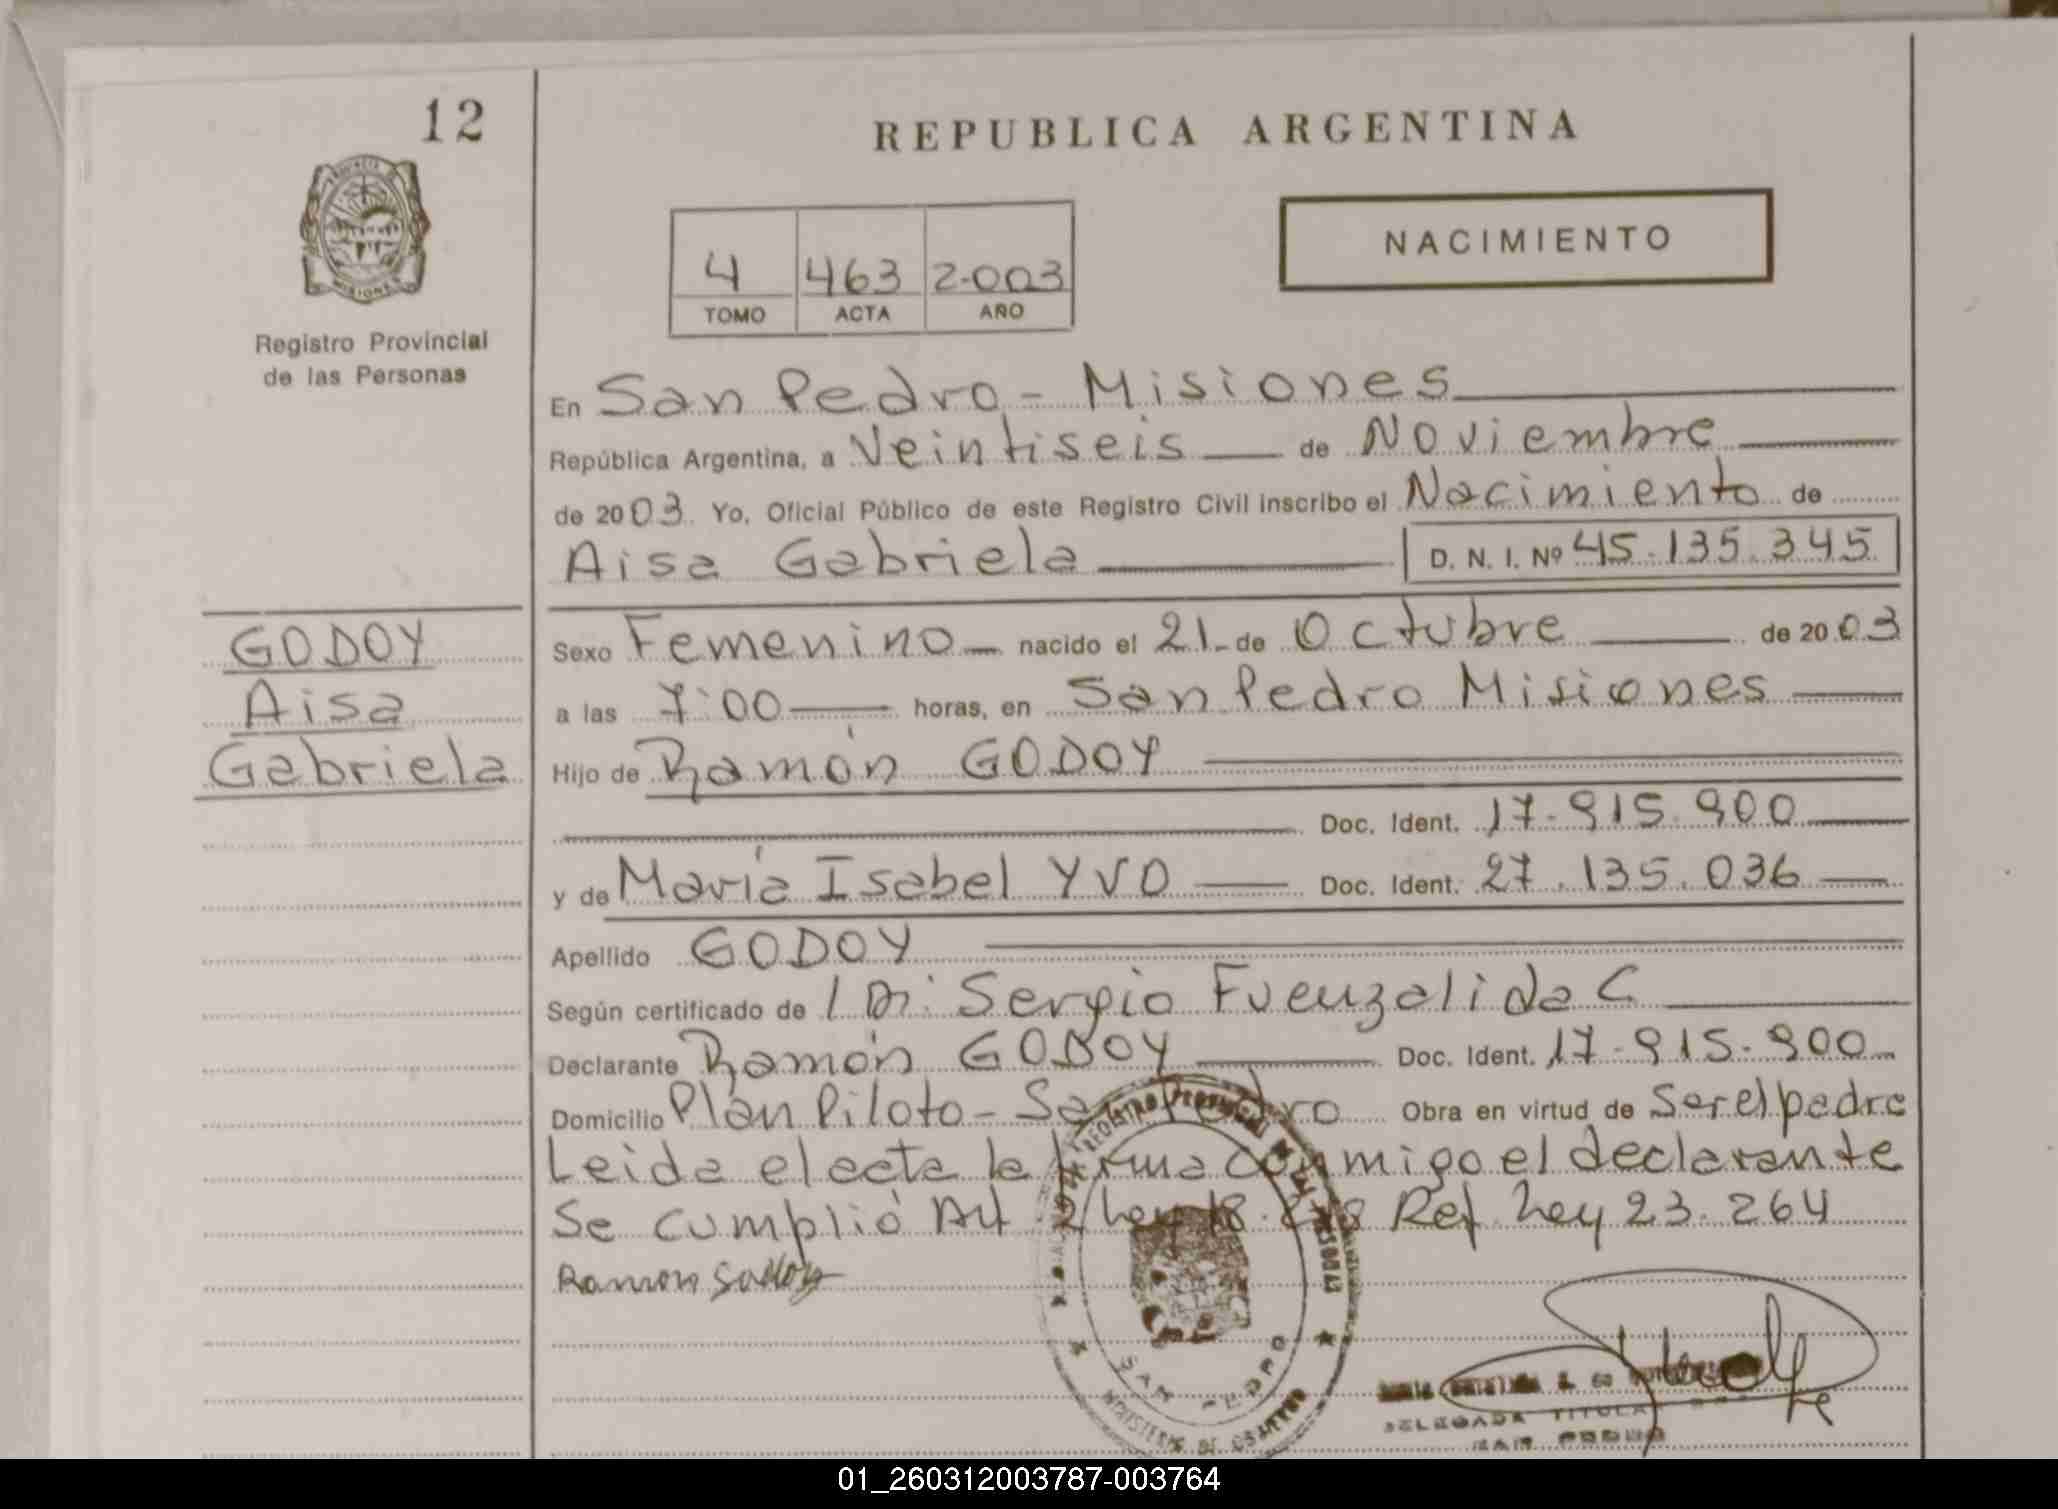 12
REPUBLICA ARGENTINA
NACIMIENTO
4 463 2.003
TOMO ACTA AÑO
PROVINCIA DE
MISIONES
Registro Provincial
de las Personas
En San Pedro - Misiones
República Argentina, a Veintiseis de Noviembre
de 2003. Yo, Oficial Público de este Registro Civil inscribo el Nacimiento de
Aisa Gabriela D. N. I. Nº 45.135.345
GODOY
Aisa
Gabriela
Sexo Femenino nacido el 21 de Octubre de 2003
a las 7:00 horas, en San Pedro Misiones
Hijo de Ramón GODOY
Doc. Ident. 17.915.900
y de María Isabel YVO Doc. Ident. 27.135.036
Apellido GODOY
Según certificado de Dr. Sergio Fuenzalida C
Declarante Ramón GODOY Doc. Ident. 17.915.900
Domicilio Plan Piloto - San Pedro Obra en virtud de Ser el padre
Leida el acta la firma conmigo el declarante
Se cumplió Art. 2 Ley 18.248 Ref. Ley 23.264
Ramon Godoy
REGISTRO PROVINCIAL DE LAS PERSONAS
SAN PEDRO
MINISTERIO DE GOBIERNO
DELEGADA TITULAR
SAN PEDRO
01_260312003787-003764